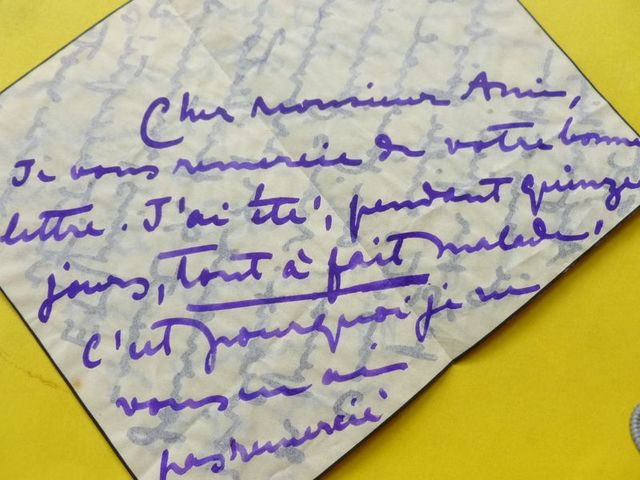 Cher Monsieur Ami,
Je vous remercie de votre bonne
lettre. J'ai été, pendant quinze
jours, tout à fait malade,
c'est pourquoi je ne
vous en ai
pas remercié